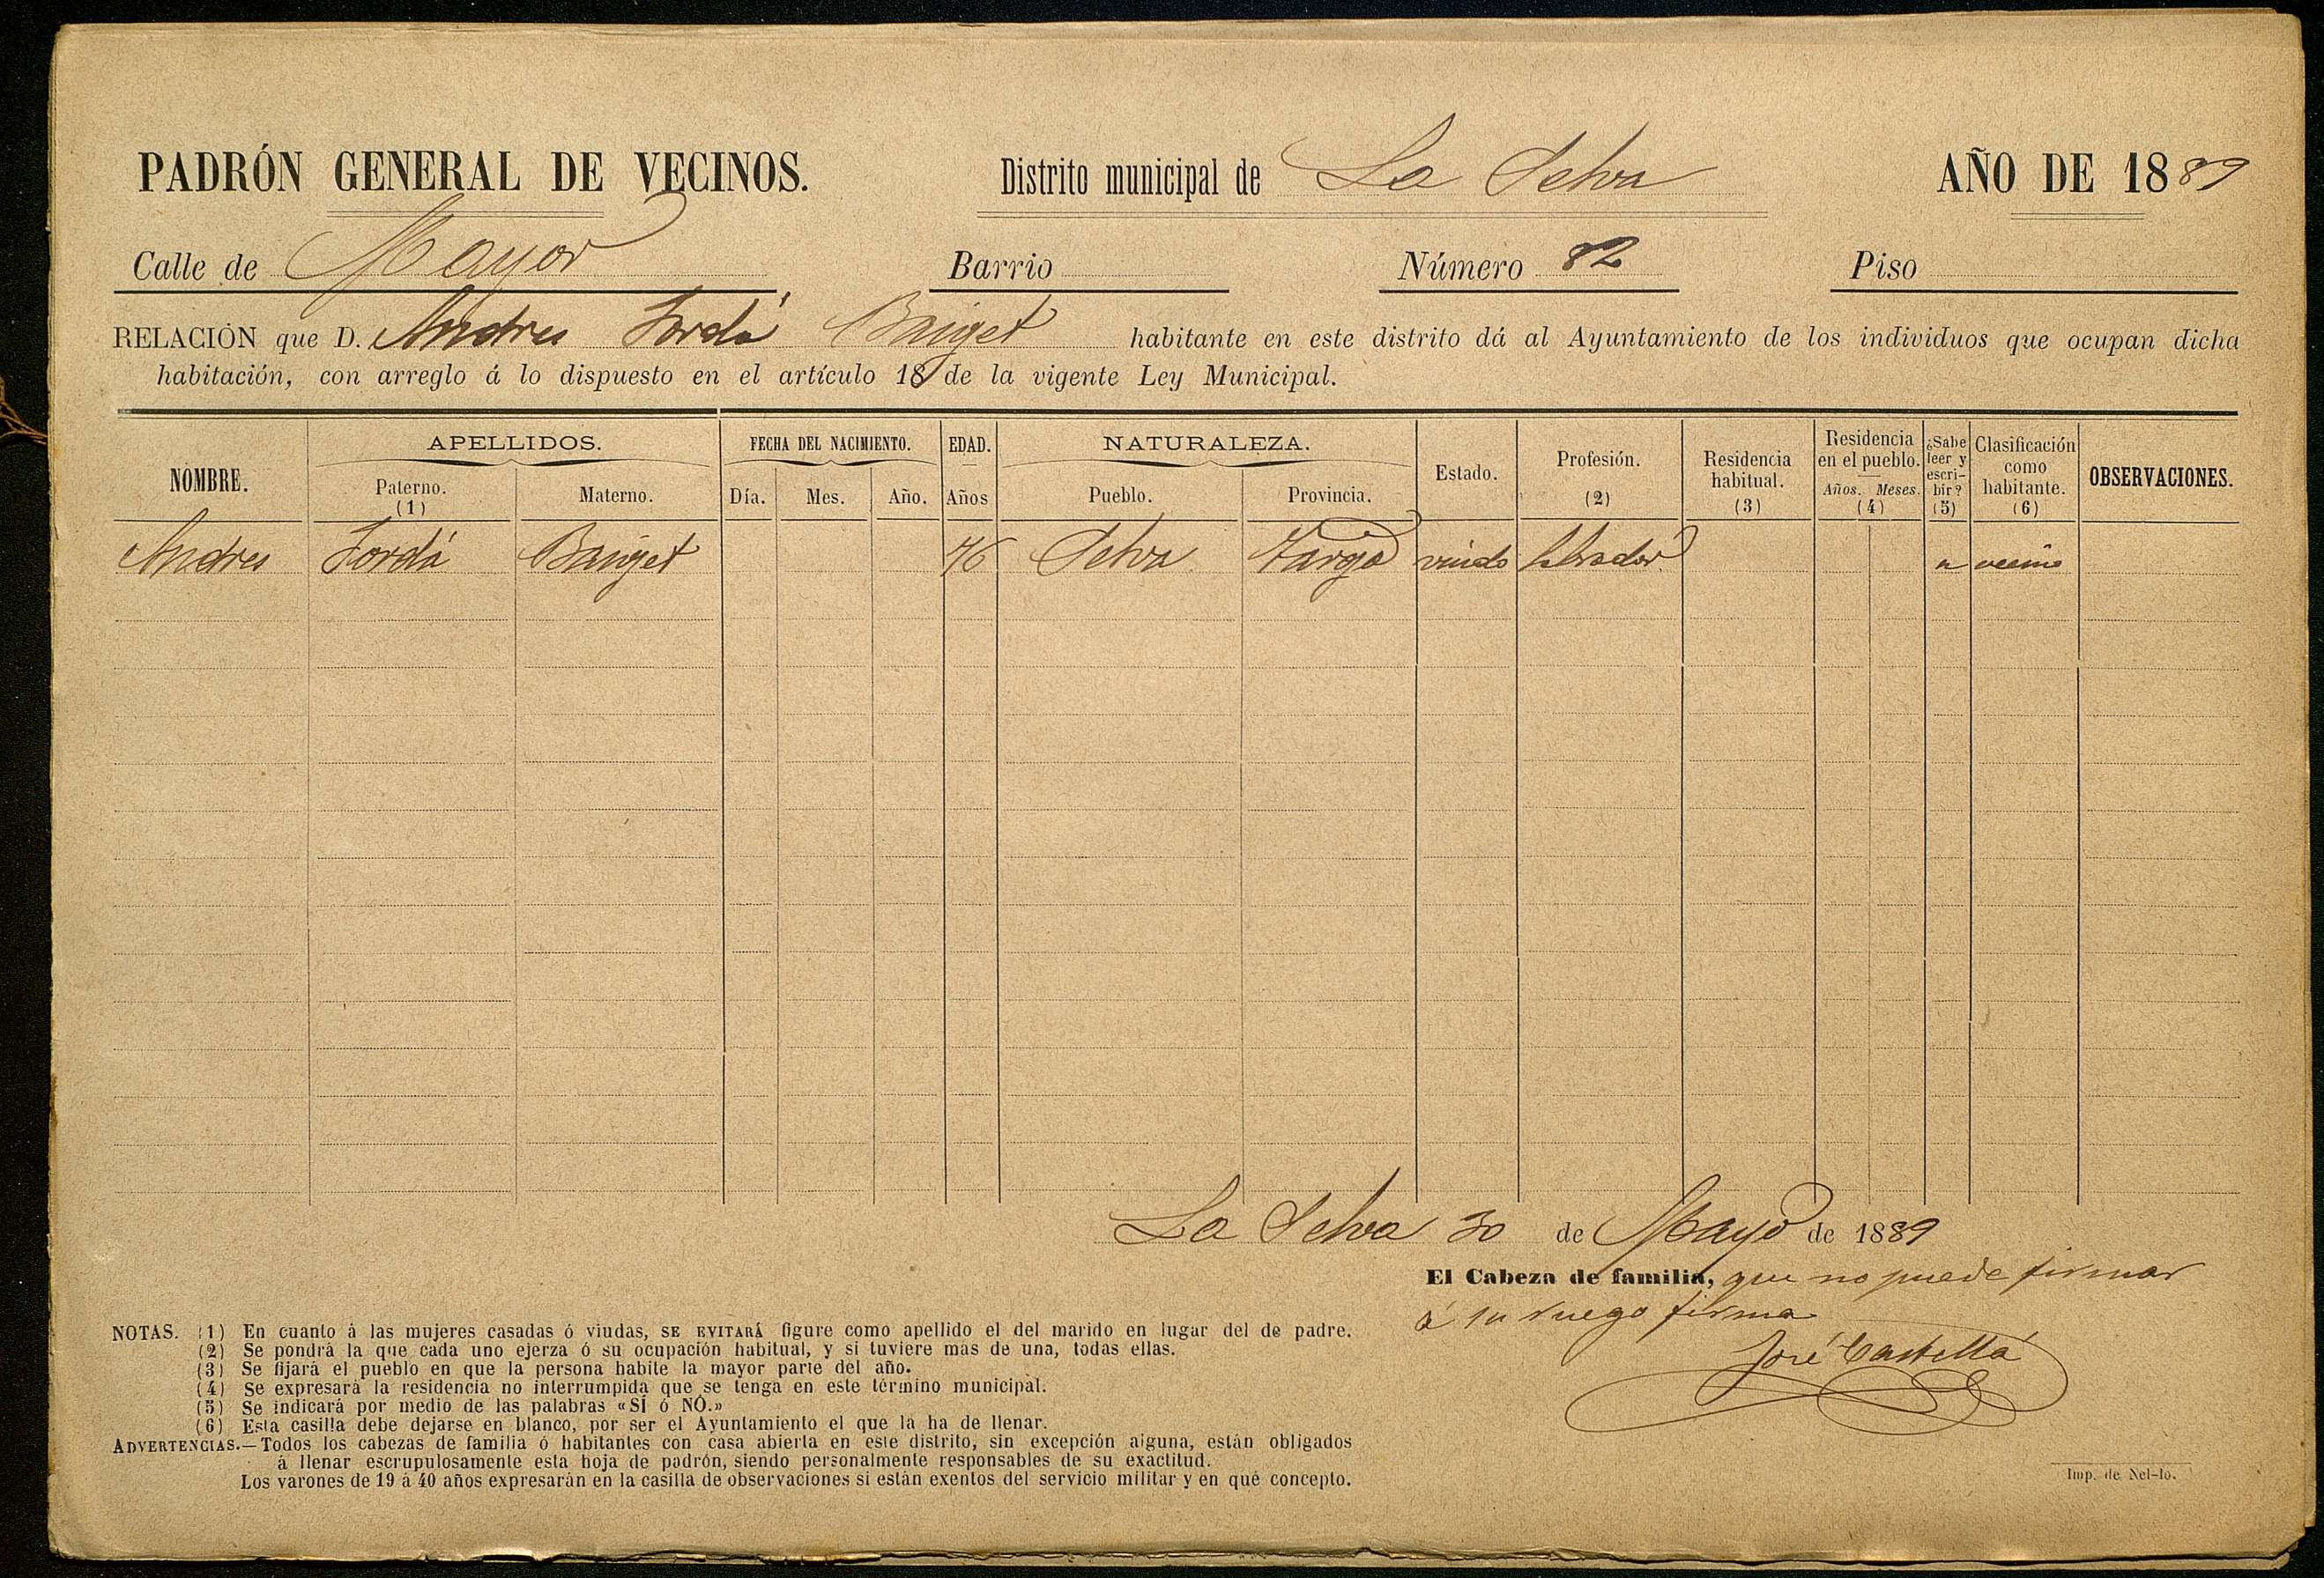 PADRÓN GENERAL DE VECINOS. Distrito municipal de La Selva AÑO DE 1889
Calle de Mayor Barrio Número 82 Piso
RELACIÓN que D. Andres Jordá Baiget habitante en este distrito dá al Ayuntamiento de los individuos que ocupan dicha
habitación, con arreglo á lo dispuesto en el artículo 18 de la vigente Ley Municipal.
NOMBRE. APELLIDOS. Paterno. (1) Materno. FECHA DEL NACIMIENTO. Día. Mes. Año. EDAD. Años NATURALEZA. Pueblo. Provincia. Estado. Profesión. (2) Residencia habitual. (3) Residencia en el pueblo. Años. Meses. (4) ¿Sabe leer y escribir? (5) Clasificación como habitante. (6) OBSERVACIONES.
Andres Jordá Baiget 76 Selva Tarrgª viudo labrador n vecino
La Selva 30 de Mayo de 1889
El Cabeza de familia, que no puede firmar
á su ruego firma
José Castellá
NOTAS. (1) En cuanto á las mujeres casadas ó viudas, SE EVITARÁ figure como apellido el del marido en lugar del de padre.
(2) Se pondrá la que cada uno ejerza ó su ocupación habitual, y si tuviere mas de una, todas ellas.
(3) Se fijará el pueblo en que la persona habite la mayor parte del año.
(4) Se expresará la residencia no interrumpida que se tenga en este término municipal.
(5) Se indicará por medio de las palabras «SÍ ó NÓ.»
(6) Esta casilla debe dejarse en blanco, por ser el Ayuntamiento el que la ha de llenar.
ADVERTENCIAS.—Todos los cabezas de familia ó habitantes con casa abierta en este distrito, sin excepción alguna, están obligados
á llenar escrupulosamente esta hoja de padrón, siendo personalmente responsables de su exactitud.
Los varones de 19 á 40 años expresarán en la casilla de observaciones si están exentos del servicio militar y en qué concepto.
Imp. de Nel-lo.